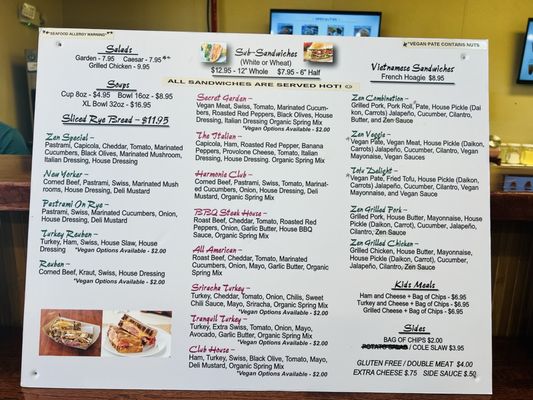 **SEAFOOD ALLERGY WARNING**
**VEGAN PATE CONTAINS NUTS
Salads
Garden - 7.95 Caesar - 7.95**
Grilled Chicken - 9.95
Soups
Cup 8oz - $4.95 Bowl 16oz - $8.95
XL Bowl 32oz - $16.95
Sliced Rye Bread - $11.95
Zen Special -
Pastrami, Capicola, Cheddar, Tomato, Marinated
Cucumbers, Black Olives, Marinated Mushroom,
Italian Dressing, House Dressing
New Yorker -
Corned Beef, Pastrami, Swiss, Marinated Mush
rooms, House Dressing, Deli Mustard
Pastrami On Rye -
Pastrami, Swiss, Marinated Cucumbers, Onion,
House Dressing, Deli Mustard
Turkey Reuben -
Turkey, Ham, Swiss, House Slaw, House
Dressing *Vegan Options Available - $2.00
Reuben -
Corned Beef, Kraut, Swiss, House Dressing
*Vegan Options Available - $2.00
Sub-Sandwiches
(White or Wheat)
$12.95 - 12" Whole $7.95 - 6" Half
ALL SANDWICHES ARE SERVED HOT!
Secret Garden -
Vegan Meat, Swiss, Tomato, Marinated Cucum-
bers, Roasted Red Peppers, Black Olives, House
Dressing, Italian Dressing Organic Spring Mix
*Vegan Options Available - $2.00
The Italian -
Capicola, Ham, Roasted Red Pepper, Banana
Peppers, Provolone Cheese, Tomato, Italian
Dressing, House Dressing. Organic Spring Mix
Harmonie Club -
Corned Beef, Pastrami, Swiss, Tomato, Marinat-
ed Cucumbers, Onion, House Dressing, Deli
Mustard, Organic Spring Mix
BBQ Steak House -
Roast Beef, Cheddar, Tomato, Roasted Red
Peppers, Onion, Garlic Butter, House BBQ
Sauce, Organic Spring Mix
All American -
Roast Beef, Cheddar, Tomato, Marinated
Cucumbers, Onion, Mayo, Garlic Butter, Organic
Spring Mix
Sriracha Turkey -
Turkey, Cheddar, Tomato, Onion, Chilis, Sweet
Chili Sauce, Mayo, Sriracha, Organic Spring Mix
*Vegan Options Available - $2.00
Tranquil Turkey -
Turkey, Extra Swiss, Tomato, Onion, Mayo,
Avocado, Garlic Butter, Organic Spring Mix
*Vegan Options Available - $2.00
Club House -
Ham, Turkey, Swiss, Black Olive, Tomato, Mayo,
Deli Mustard, Organic Spring Mix
*Vegan Options Available - $2.00
Vietnamese Sandwiches
French Hoagie $8.95
Zen Combination -
Grilled Pork, Pork Roll, Pate, House Pickle (Dai
kon, Carrots) Jalapeño, Cucumber, Cilantro,
Butter, and Zen Sauce
*Zen Veggie -
Vegan Pate, Vegan Meat, House Pickle (Daikon,
Carrots) Jalapeño, Cucumber, Cilantro, Vegan
Mayonnaise, Vegan Sauces
Tofu Delight -
*Vegan Pate, Fried Tofu, House Pickle (Daikon,
Carrots) Jalapeño, Cucumber, Cilantro, Vegan
Mayonnaise, and Vegan Sauce
Zen Grilled Pork -
Grilled Pork, House Butter, Mayonnaise, House
Pickle (Daikon, Carrot), Cucumber, Jalapeño,
Cilantro, Zen Sauce
Zen Grilled Chicken -
Grilled Chicken, House Butter, Mayonnaise,
House Pickle (Daikon, Carrot), Cucumber,
Jalapeño, Cilantro, Zen Sauce
Kids Meals
Ham and Cheese + Bag of Chips - $6.95
Turkey and Cheese + Bag of Chips - $6.95
Grilled Cheese + Bag of Chips - $6.95
Sides
BAG OF CHIPS $2.00
POTATO SALAD / COLE SLAW $3.95
GLUTEN FREE / DOUBLE MEAT $4.00
EXTRA CHEESE $.75 SIDE SAUCE $.50